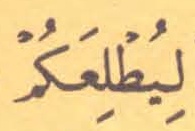 لِيُطْلِعَكُمْ